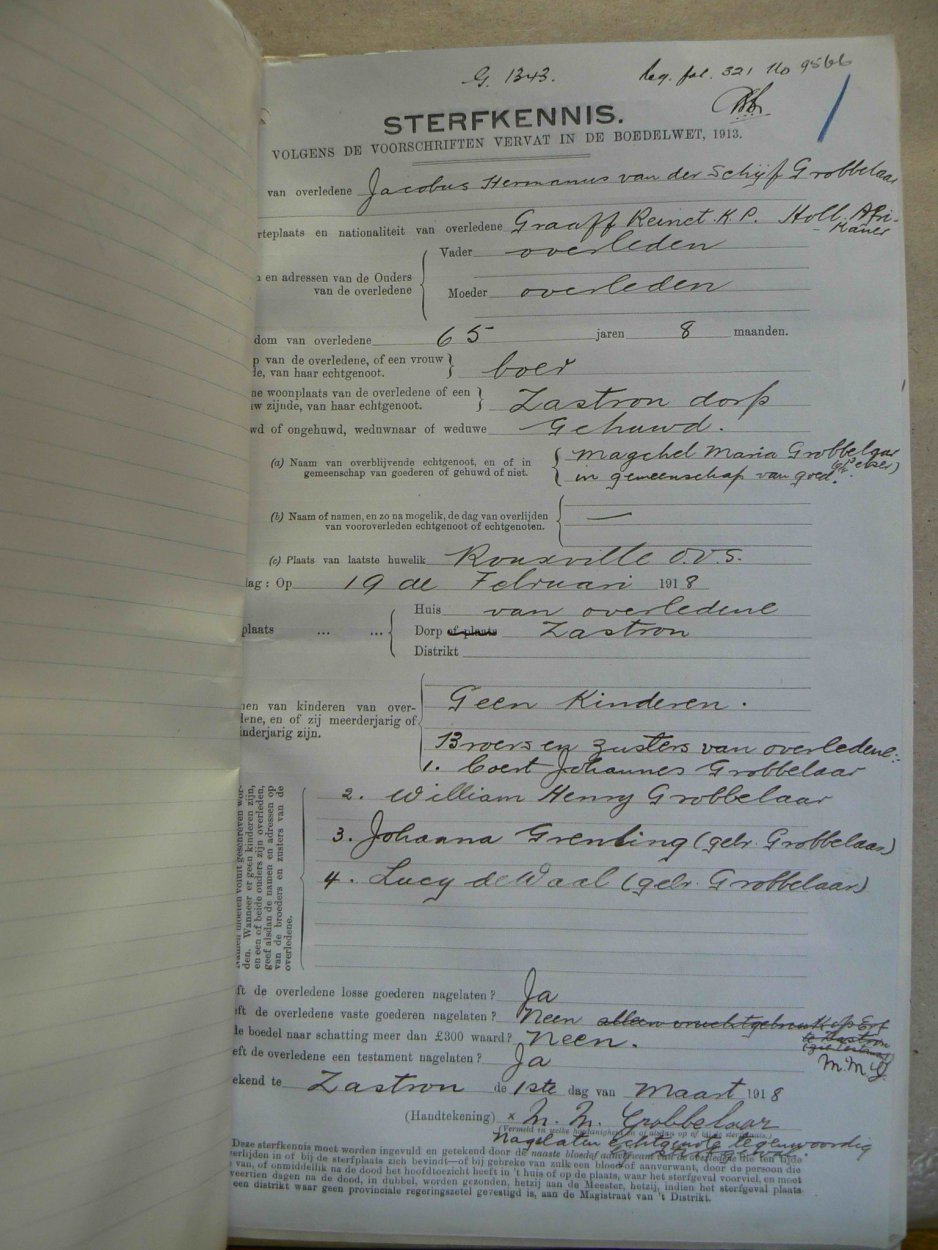 G. 1343.
Reg. fol. 321 No 9566
STERFKENNIS.
VOLGENS DE VOORSCHRIFTEN VERVAT IN DE BOEDELWET, 1913.
van overledene Jacobus Hermanus van der Schijf Grobbelaar
rteplaats en nationaliteit van overledene Graaff Reinet. K.P. Holl. Afri-
kaner
Vader overleden
en adressen van de Ouders
van de overledene
Moeder overleden
dom van overledene 65 jaren 8 maanden.
p van de overledene, of een vrouw
de, van haar echtgenoot. boer
ne woonplaats van de overledene of een
uw zijnde, van haar echtgenoot. Zastron dorp
wd of ongehuwd, weduwnaar of weduwe Gehuwd.
(a) Naam van overblijvende echtgenoot, en of in
gemeenschap van goederen of gehuwd of niet.
Magchel Maria Grobbelaar
in gemeenschap van goed.
(b) Naam of namen, en zo na mogelik, de dag van overlijden
van vooroverleden echtgenoot of echtgenoten. —
(c) Plaats van laatste huwelik Rouxville O.V.S.
dag: Op 19 de Februari 1918
Huis van overledene
plaats ... ... Dorp of plaats Zastron
Distrikt
nen van kinderen van over-
dene, en of zij meerderjarig of
inderjarig zijn.
Geen Kinderen.
Broers en zusters van overledene:
1. Coert Johannes Grobbelaar
2. William Henry Grobbelaar
3. Johanna Grenling (gebr. Grobbelaar)
4. Lucy de Waal (gebr. Grobbelaar)
Namen moeten voluit geschreven wor-
den. Wanneer er geen kinderen zijn,
en een of beide ouders zijn overleden,
geef alsdan de namen en adressen op
van de broeders en zusters van de
overledene.
eft de overledene losse goederen nagelaten? Ja
eft de overledene vaste goederen nagelaten? Neen alleen vruchtgebruik op Erf
te Zastron
de boedel naar schatting meer dan £300 waard? Neen.
eft de overledene een testament nagelaten? Ja
M.M.G.
ekend te Zastron de 1ste dag van Maart 1918
(Handtekening) x M. M. Grobbelaar
Nagelaten Echtgenote tegenwoordig
Deze sterfkennis moet worden ingevuld en getekend door de naaste bloedof aanverwant van de overledene die ten tijde
verlijden in of bij de sterfplaats zich bevindt—of bij gebreke van zulk een bloed of aanverwant, door de persoon die
van, of onmiddellik na de dood het hoofdtoezicht heeft in 't huis of op de plaats, waar het sterfgeval voorviel, en moet
veertien dagen na de dood, in dubbel, worden gezonden, hetzij aan de Meester, hetzij, indien het sterfgeval plaats
een distrikt waar geen provinciale regeringszetel gevestigd is, aan de Magistraat van 't Distrikt.